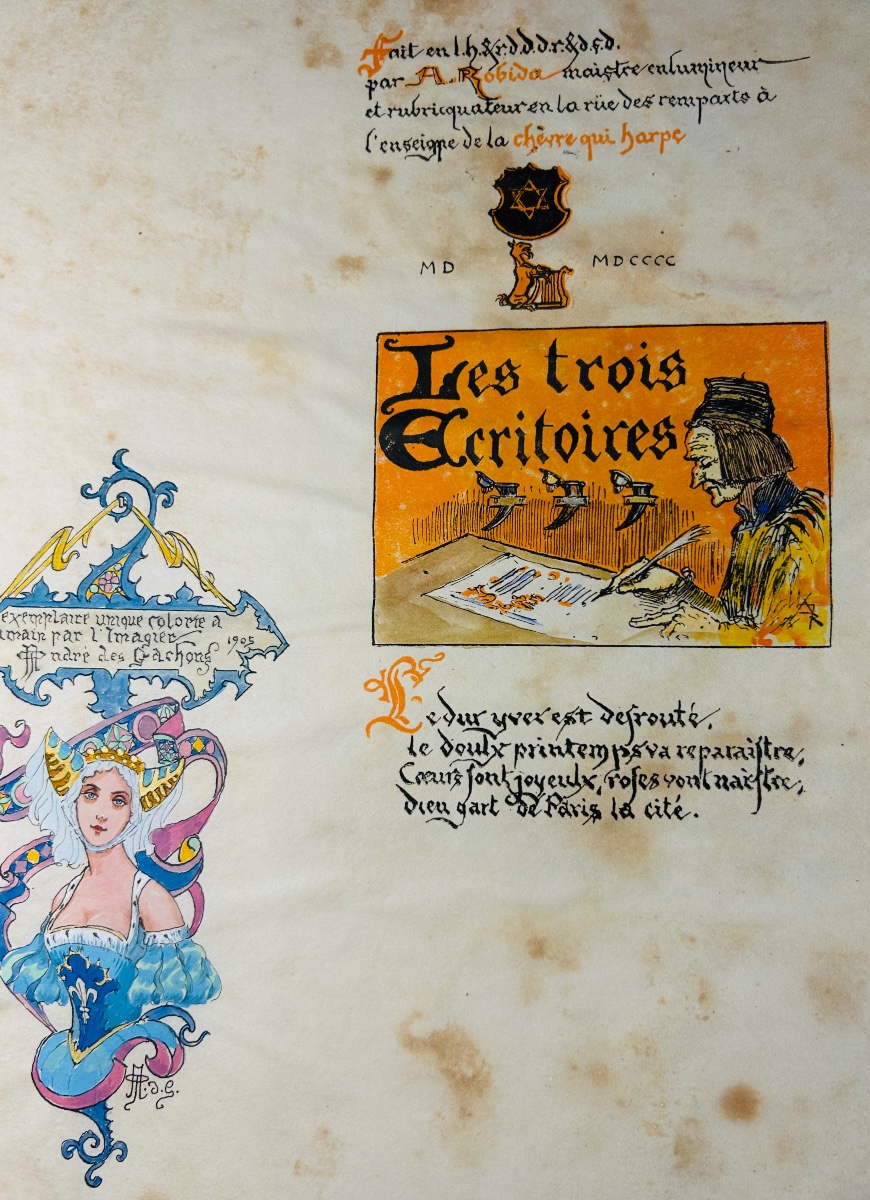 Fait en l.h.&r.d.d.d.r.&d.s.d.
par A. Robida maistre enlumineur
et rubricquateur en la rüe des remparts à
l'enseigne de la chèvre qui harpe
MD MDCCCC
Les trois
Ecritoires
Le dur yver est desrouté,
le doulx printemps va reparaistre,
Cœurs sont joyeulx, roses vont naistre,
dieu gart de Paris la cité.
exemplaire unique colorié a
main par l'Imagier
André des Gachons 1905
A.d.G.
AR